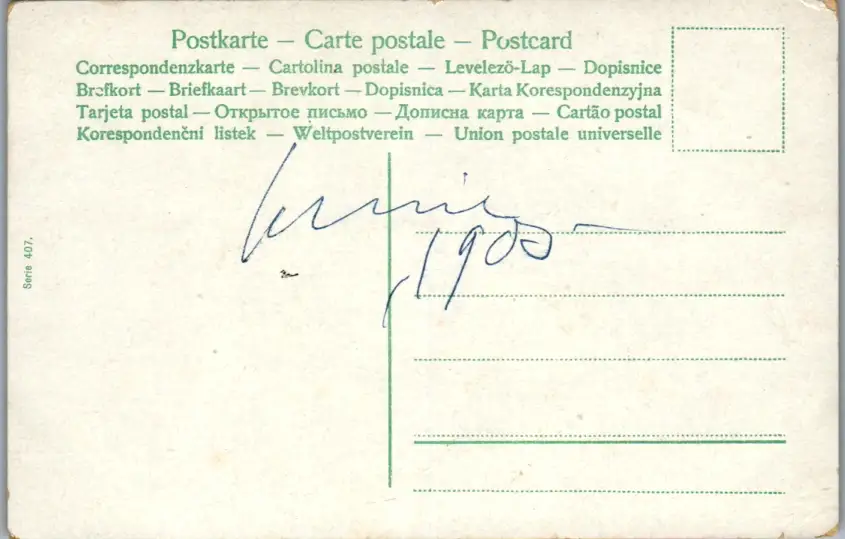 Postkarte – Carte postale – Postcard
Correspondenzkarte – Cartolina postale – Levelező-Lap – Dopisnice
Brefkort – Briefkaart – Brevkort – Dopisnica – Karta Korespondenzyjna
Tarjeta postal – Открытое письмо – Дописна карта – Cartão postal
Korespondenční listek – Weltpostverein – Union postale universelle
Serie 407.